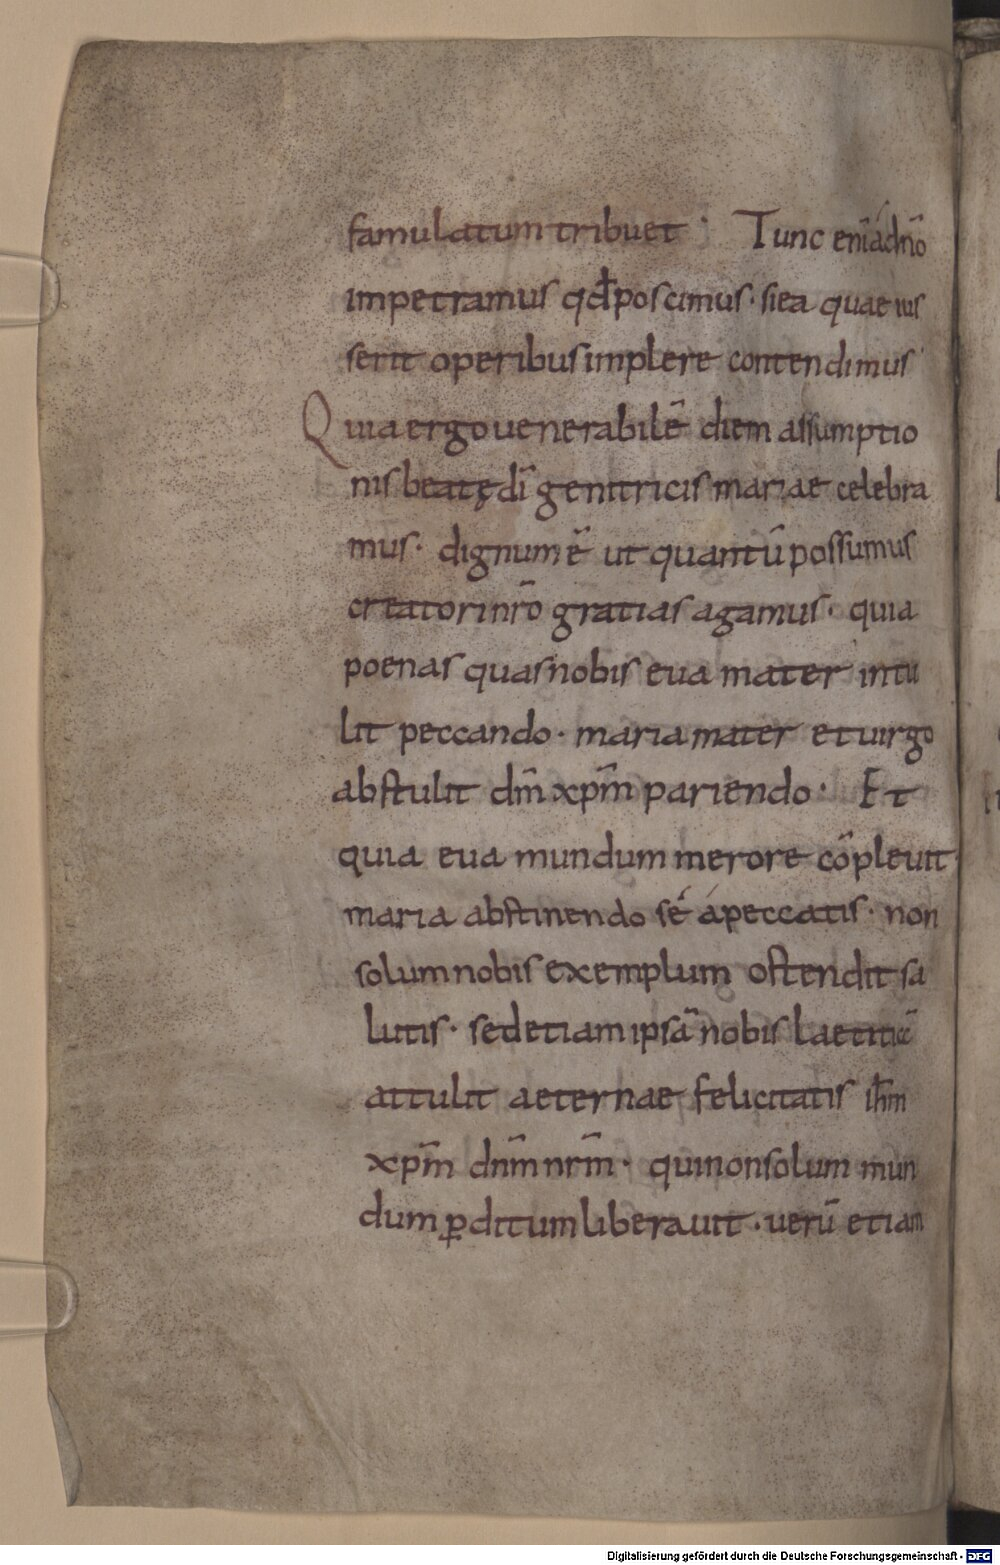 famulatum tribuet · Tunc enī á dnō
impetramus qđ poscimus · si ea quae ius
serit operibus implere contendimus
Quia ergo uenerabilē diem assumptio
nis beatę dī genitricis mariae celebra
mus · dignum ē ut quantū possumus
creatori nrō gratias agamus · quia
poenas quas nobis eua mater intu
lit peccando · maria mater et uirgo
abstulit dm̄ xpm̄ pariendo · Et
quia eua mundum merore cōpleuit
maria abstinendo sé á peccatis · non
solum nobis exemplum ostendit sa
lutis · sed etiam ipsā nobis laetitiā
attulit aeternae felicitatis ihm̄
xpm̄ dnm̄ nrm̄ · qui non solum mun
dum ꝑditum liberauit · uerū etiam
Digitalisierung gefördert durch die Deutsche Forschungsgemeinschaft - DFG